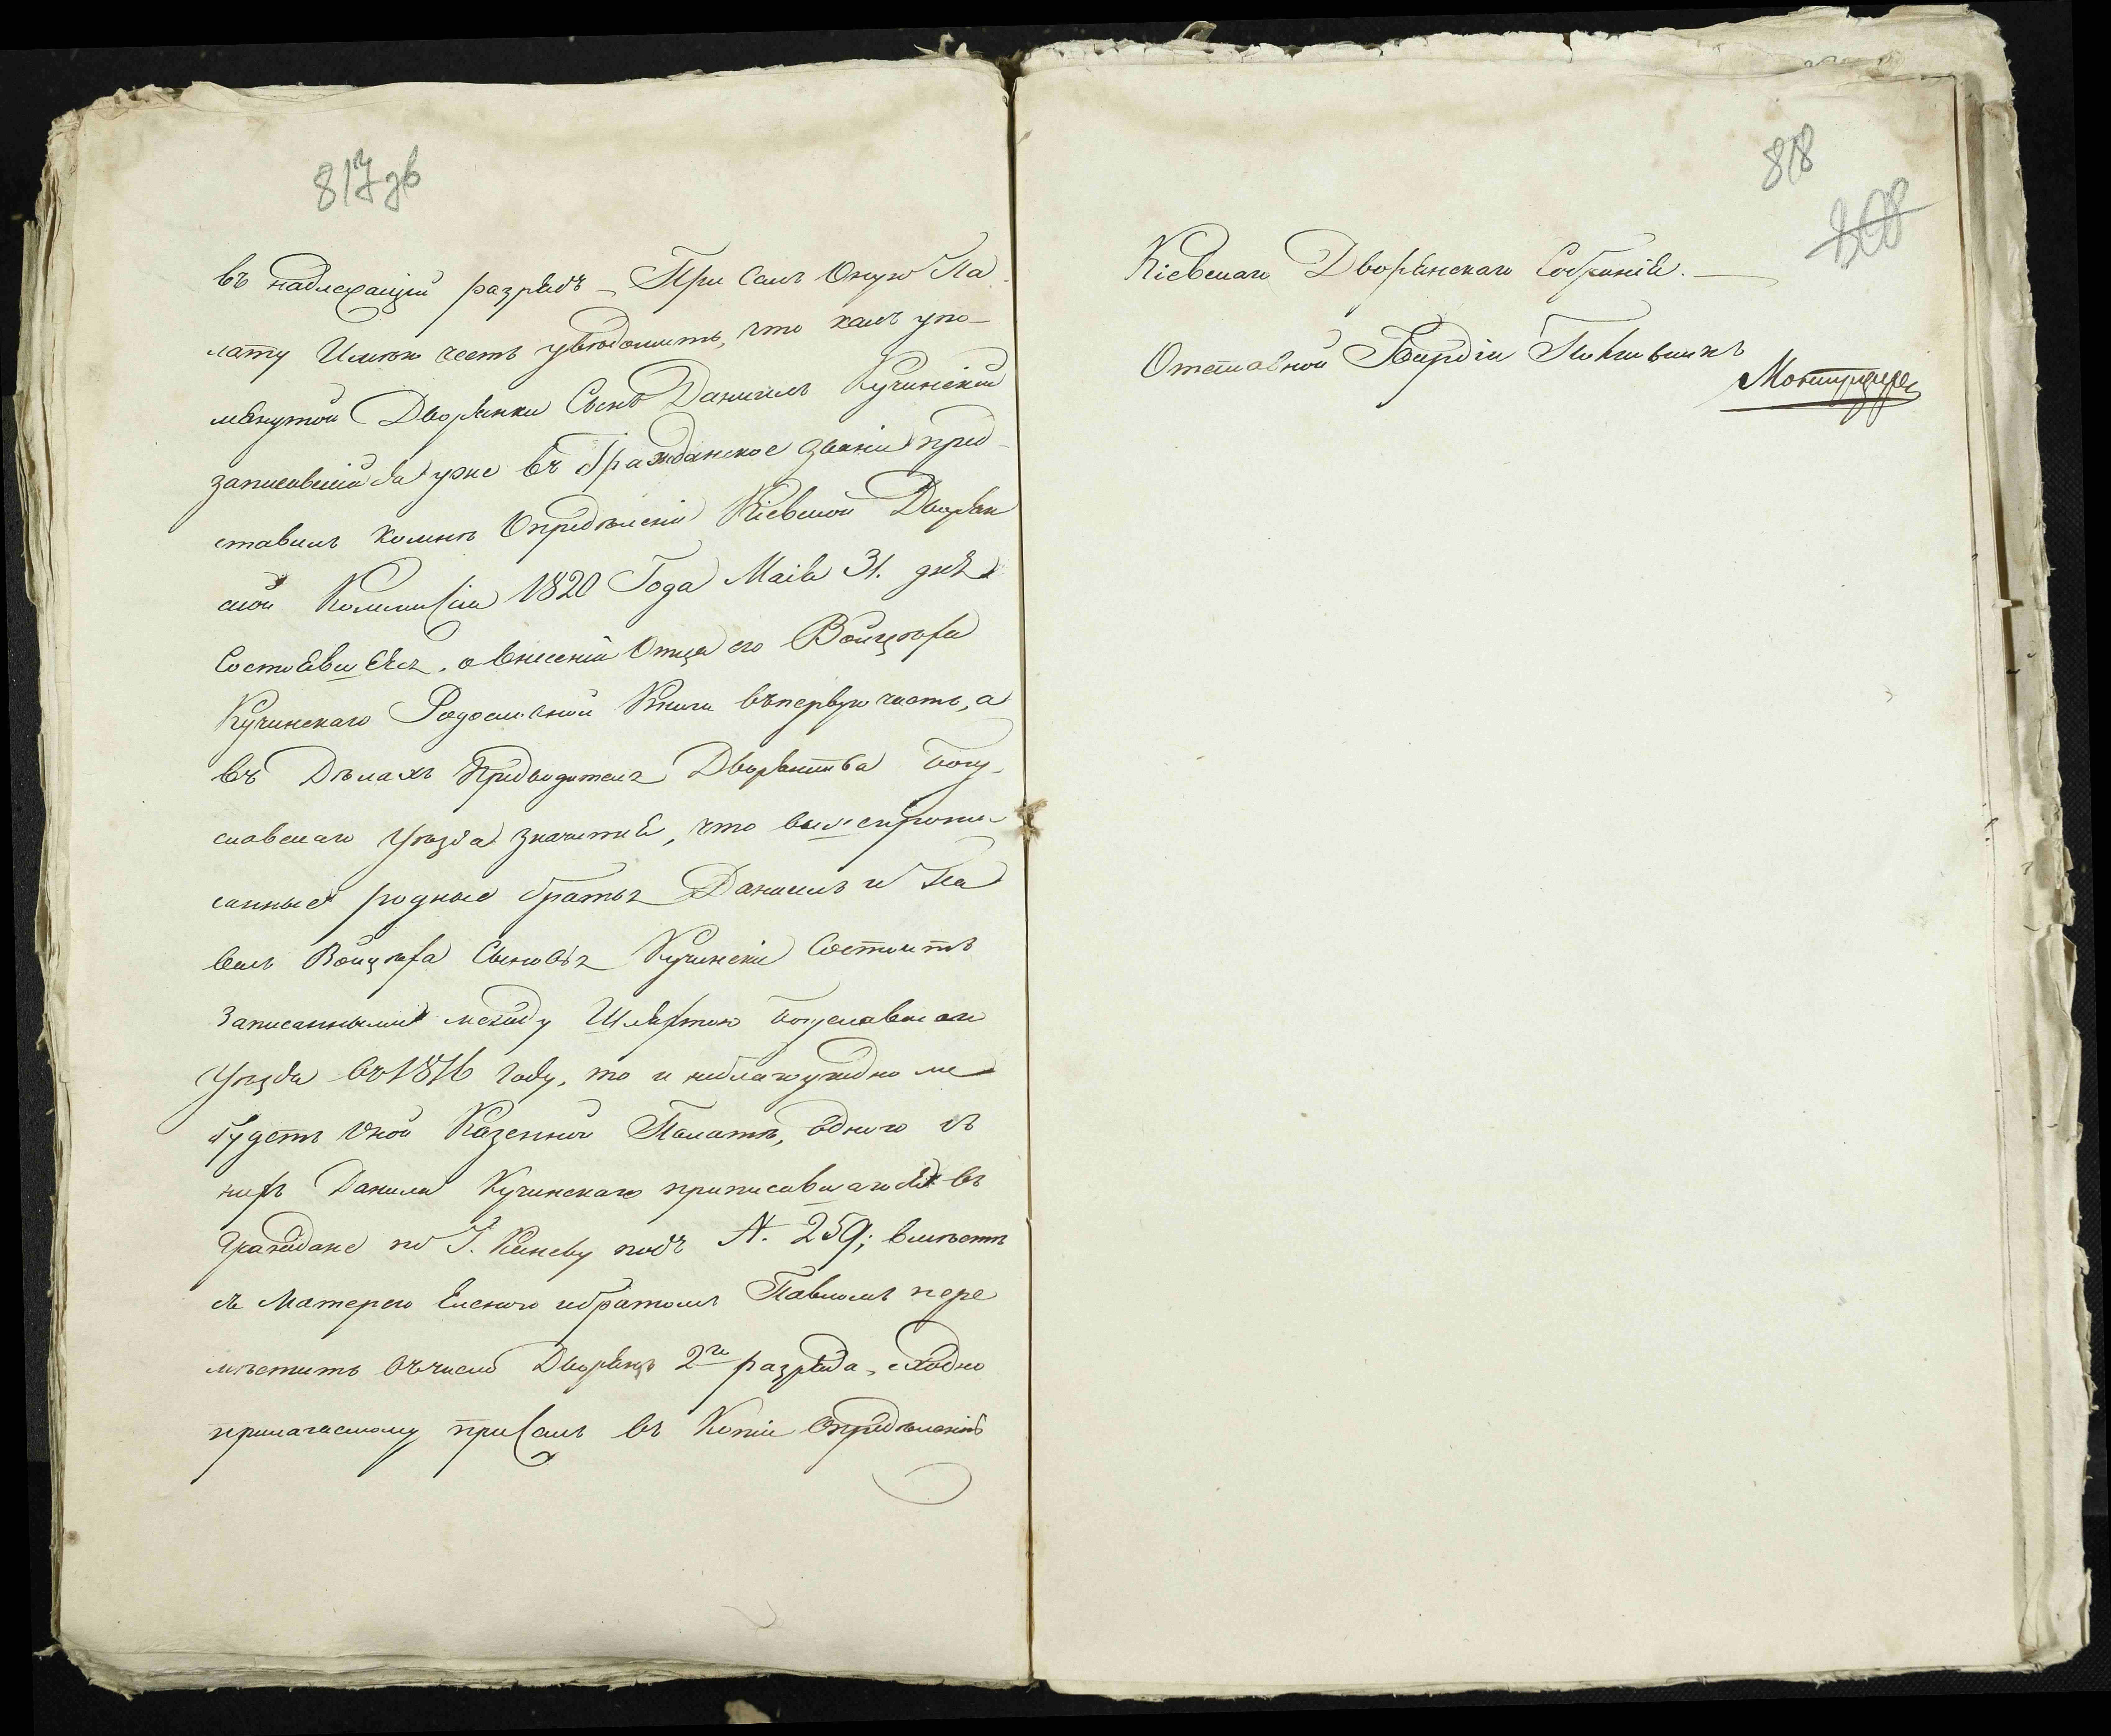 817 зв
въ надлежащій разрядъ – При семъ Оную Па
лату Имѣю честь увѣдомить, что какъ упо-
мянутой Дворянки Сынъ Даниилъ Кучинскій
записавшійся уже въ Гражданское званіе пред-
ставилъ комнѣ Опредѣленіе Кіевской Дворян
ской Коммисіи 1820 Года Маія 31. дня
Состоявшееся, о внесеніи Отца его Войцѣха
Кучинскаго Родословной Книги въпервую часть, а
въ Дѣлахъ Предводителя Дворянства Богу-
славскаго Уѣзда значится, что вышепропи-
санные родные братья Даниилъ и Па
велъ Войцѣха Сыновья Кучинскіе Состоятъ
Записанными между Шляхтою Богуславскаго
Уѣзда въ 1816 году, то и неблагоугодно ли
будетъ Оной Казенной Палатѣ, одного съ
нихъ Данила Кучинскаго приписавшагося въ
Граждане по Г. Каневу подъ N. 259; вмѣстѣ
съ Матерею Еленою ибратомъ Павломъ пере
мѣстить въчисло Дворянъ 2го разряда, сходно
прилагаемому присемъ въ Копіи Опредѣленію
818
308
Кіевскаго Дворянскаго Собранія. —
Отставной Гвардіи Полковникъ